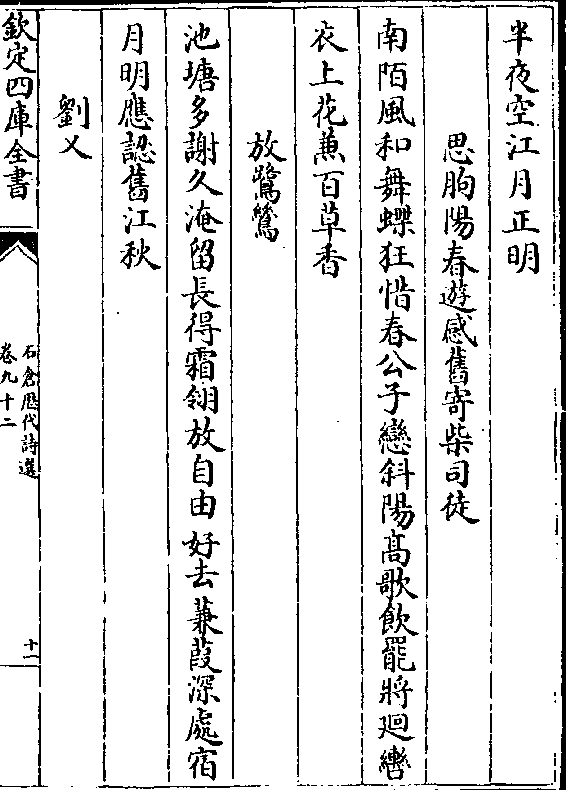 半夜空江月正明
思朐陽春遊感舊寄柴司徒
南陌風和舞蝶狂惜春公子戀斜陽高歌飲罷將廻轡
衣上花薫百草香
放鷺鷥
池塘多謝久淹留長得霜翎放自由好去蒹葭深處宿
月明應認舊江秋
劉乂
欽定四庫全書
石倉歴代詩選
卷九十二
十一